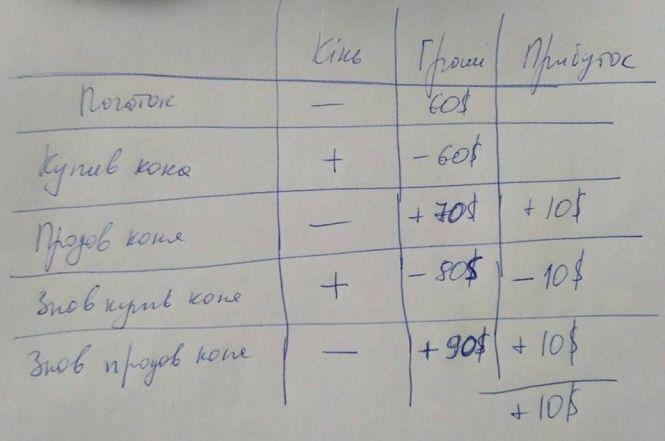 Кінь Гроші Прибуток
Початок — 60$
Купив коня + - 60$
Продав коня — + 70$ + 10$
Знов купив коня + - 80$ - 10$
Знов продав коня — + 90$ + 10$
+ 10$